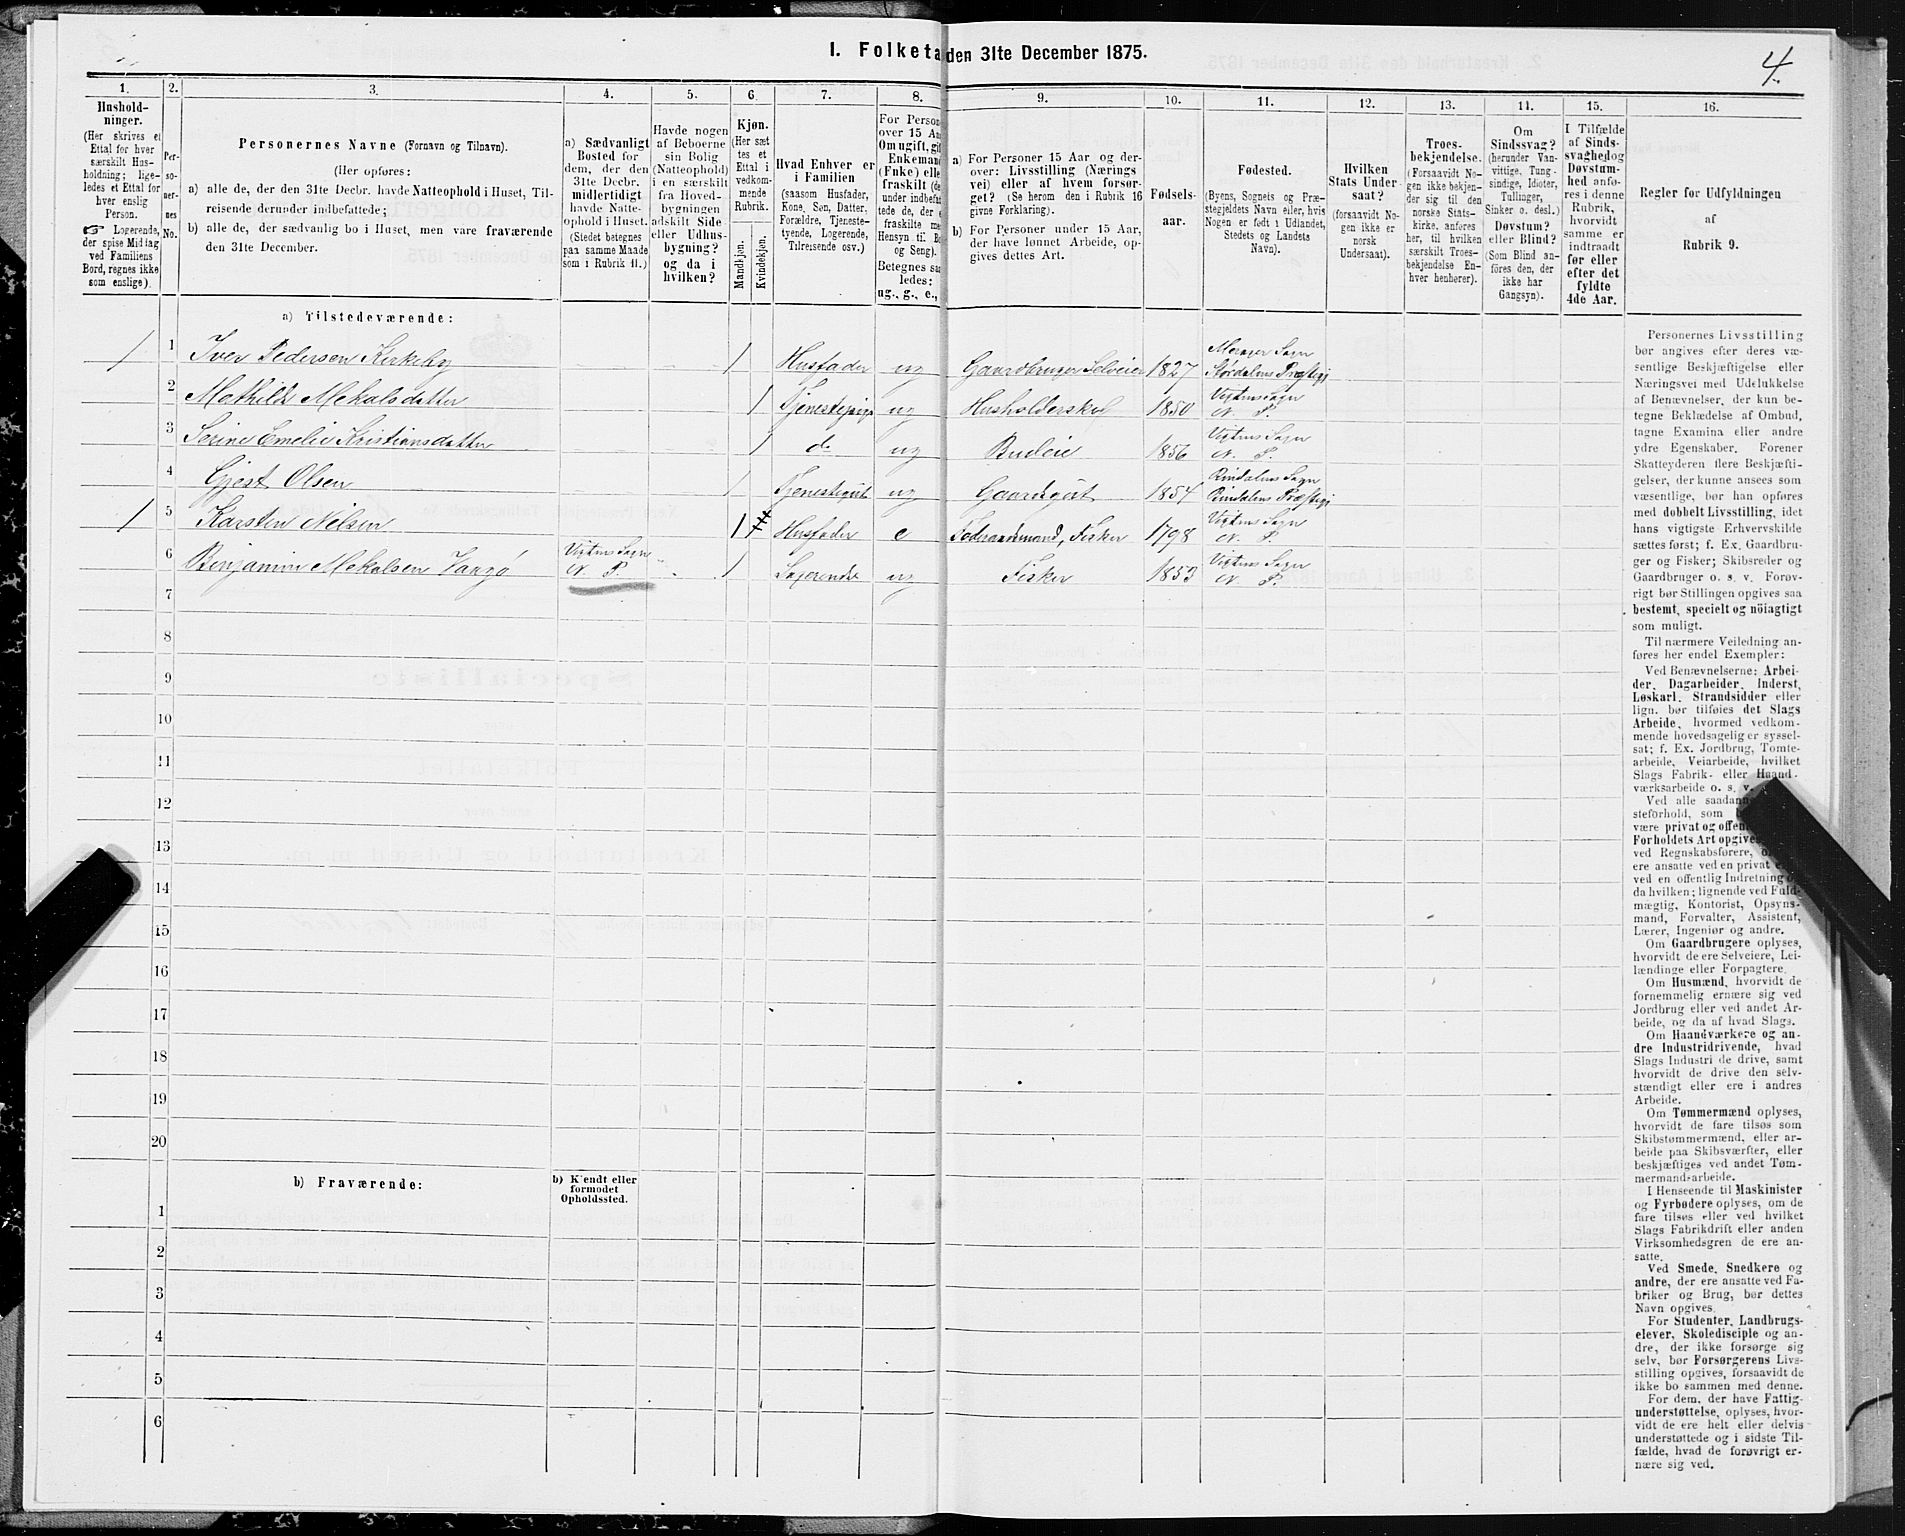 I. Folketa den 31te December 1875.
4.
1.
2.
3.
4.
5.
6.
7.
8.
9.
10.
11.
12.
13.
14.
15.
16.
Hushold-
ninger.
(Her skrives et
Ettal for hver
særskilt Hus-
holdning; lige-
ledes et Ettal for
hver enslig
Person.
☞ Logerende,
der spise Middag
ved Familiens
Bord, regnes ikke
som enslige).
Per-
so-
ner-
nes
No.
Personernes Navne (Fornavn og Tilnavn).
(Her opføres:
a) alle de, der den 31te Decbr. havde Natteophold i Huset, Til-
reisende derunder indbefattede;
b) alle de, der sædvanlig bo i Huset, men vare fraværende
den 31te December.
a) Sædvanligt
Bosted for
dem, der den
31te Decbr.
midlertidigt
havde Natte-
ophold i Huset.
(Stedet betegnes
paa samme Maade
som i Rubrik 11.)
Havde nogen
af Beboerne
sin Bolig
(Natteophold)
i en særskilt
fra Hoved-
bygningen
adskilt Side-
eller Udhus-
bygning?
og da i
hvilken?
Kjøn.
(Her sæt
tes et
Ettal i
vedkom-
mende
Rubrik.
Mandkjøn.
Kvindekjøn.
Hvad Enhver er
i Familien
(saasom Husfader,
Kone, Søn, Datter,
Forældre, Tjeneste-
tyende, Logerende,
Tilreisende osv.)
For Person
over 15 Aa
Om ugift, gif
Enkeman
(Enke) elle
fraskilt (de
under indbefat
tede de, der e
fraskilte me
Hensyn til Bo
og Seng).
Betegnes saa
ledes:
ug., g., e.,
a) For Personer 15 Aar og der-
over: Livsstilling (Nærings
vei) eller af hvem forsør-
get? (Se herom den i Rubrik 16
givne Forklaring).
b) For Personer under 15 Aar,
der have lønnet Arbeide, op-
gives dettes Art.
Fødsels-
aar.
Fødested.
(Byens, Sognets og Præ-
stegjeldets Navn eller, hvis
Nogen er født i Udlandet,
Stedets og Landets
Navn).
Hvilken
Stats Under-
saat?
(forsaavidt No-
gen ikke er
norsk
Undersaat).
Troes-
bekjendelse.
(Forsaavidt No-
gen ikke bekjen-
der sig til den
norske Stats-
kirke, anføres
her, til hvilken
særskilt Troes-
bekjendelse En-
hver henhører).
Om
Sindssvag?
(herunder Van-
vittige, Tung-
sindige, Idioter,
Tullinger,
Sinker o. desl.)
Døvstum?
eller Blind?
(Som Blind an-
føres den, der
ikke har
Gangsyn).
I Tilfælde
af Sinds-
svaghed og
Døvstum-
hed anfø-
res i denne
Rubrik,
hvorvidt
samme er
indtraadt
før eller
efter det
fyldte
4de Aar.
Regler for Udfyldningen
af
Rubrik 9.
a) Tilstedeværende:
1 1 Iver Pedersen Kirkeby 1 Husfader ug Gaardbruger Selveier 1827 Merager Sogn
Størdalens Præstegj
2 Mathilde Mekalsdatter 1 Tjenestepige ug Husholderske 1850 Vigtens Sogn
N. P.
3 Serine Emelie Kristiansdatter 1 do ug Budeie 1856 Vigtens Sogn
N. P.
4 Gjest Olsen 1 Tjenestegut ug Gaardsgut 1854 Rindalens Sogn
Rindalens Præstegj
1 5 Karsten Nilsen 1 Husfader e Føderaadsmand, Fisker 1798 Vigtens Sogn
N. P.
6 Benjamin Mekalsen Vansø Vigtens Sogn
N. P. 1 Logerende ug Fisker 1853 Vigtens Sogn
N. P.
7
8
9
10
11
12
13
14
15
16
17
18
19
20
b) Fraværende:
b) Kjendt eller
formodet
Opholdssted.
1
2
3
4
5
6
Personernes Livsstilling
bør angives efter deres væ-
sentlige Beskjæftigelse eller
Næringsvei med Udelukkelse
af Benævnelser, der kun be-
tegne Beklædelse af Ombud,
tagne Examina eller andre
ydre Egenskaber. Forener
Skatteyderen flere Beskjæfti-
gelser, der kunne ansees som
væsentlige, bør han opføres
med dobbelt Livsstilling, idet
hans vigtigste Erhvervskilde
sættes først; f. Ex. Gaardbru-
ger og Fisker; Skibsreder og
Gaardbruger o. s. v. Forøv-
rigt bør Stillingen opgives saa
bestemt, specielt og nöiagtigt
som muligt.
Til nærmere Veiledning an-
føres her endel Exempler:
Ved Benævnelserne: Arbei-
der, Dagarbeider, Inderst,
Løskarl, Strandsidder eller
lign. bør tilføies det Slags
Arbeide, hvormed vedkom-
mende hovedsagelig er syssel-
sat; f. Ex. Jordbrug, Tomte-
arbeide, Veiarbeide, hvilket
Slags Fabrik- eller Haand-
værksarbeide o. s. v.
Ved alle saadann
steforhold, som
være privat og offen
Forholdets Art opgives,
ved Regnskabsførere,
ere ansatte ved en privat
ved en offentlig Indretning
da hvilken; lignende ved Fuld-
mægtig, Kontorist, Opsyns-
mand, Forvalter, Assistent,
Lærer, Ingeniør og andre.
Om Gaardbrugere oplyses,
hvorvidt de ere Selveiere, Lei-
lændinge eller Forpagtere.
Om Husmænd, hvorvidt de
fornemmelig ernære sig ved
Jordbrug eller ved andet Ar-
beide, og da af hvad Slags.
Om Haandværkere og an-
dre Industridrivende, hvad
Slags Industri de drive, samt
hvorvidt de drive den selv-
stændigt eller ere i andres
Arbeide.
Om Tømmermænd oplyses,
hvorvidt de fare tilsøs som
Skibstømmermænd, eller ar-
beide paa Skibsværfter, eller
beskjæftiges ved andet Tøm-
mermandsarbeide.
I Henseende til Maskinister
og Fyrbødere oplyses, om de
fare tilsøs eller ved hvilket
Slags Fabrikdrift eller anden
Virksomhedsgren de ere an-
satte.
Ved Smede, Snedkere og
andre, der ere ansatte ved Fa-
briker og Brug, bør dettes
Navn opgives.
For Studenter, Landbrugs-
elever, Skoledisciple og an-
dre, der ikke forsørge sig
selv, bør Forsørgerens Livs-
stilling opgives, forsaavidt de
ikke bo sammen med denne.
For dem, der have Fattig-
understøttelse, oplyses, hvor-
vidt de ere helt eller delvis
understøttede og i sidste Til-
fælde, hvad de forøvrigt er-
nære sig ved.